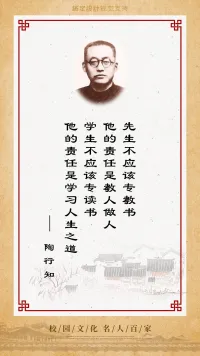 先生不应该专教书
他的责任是教人做人
学生不应该专读书
他的责任是学习人生之道
——陶行知
校园文化 名人百家